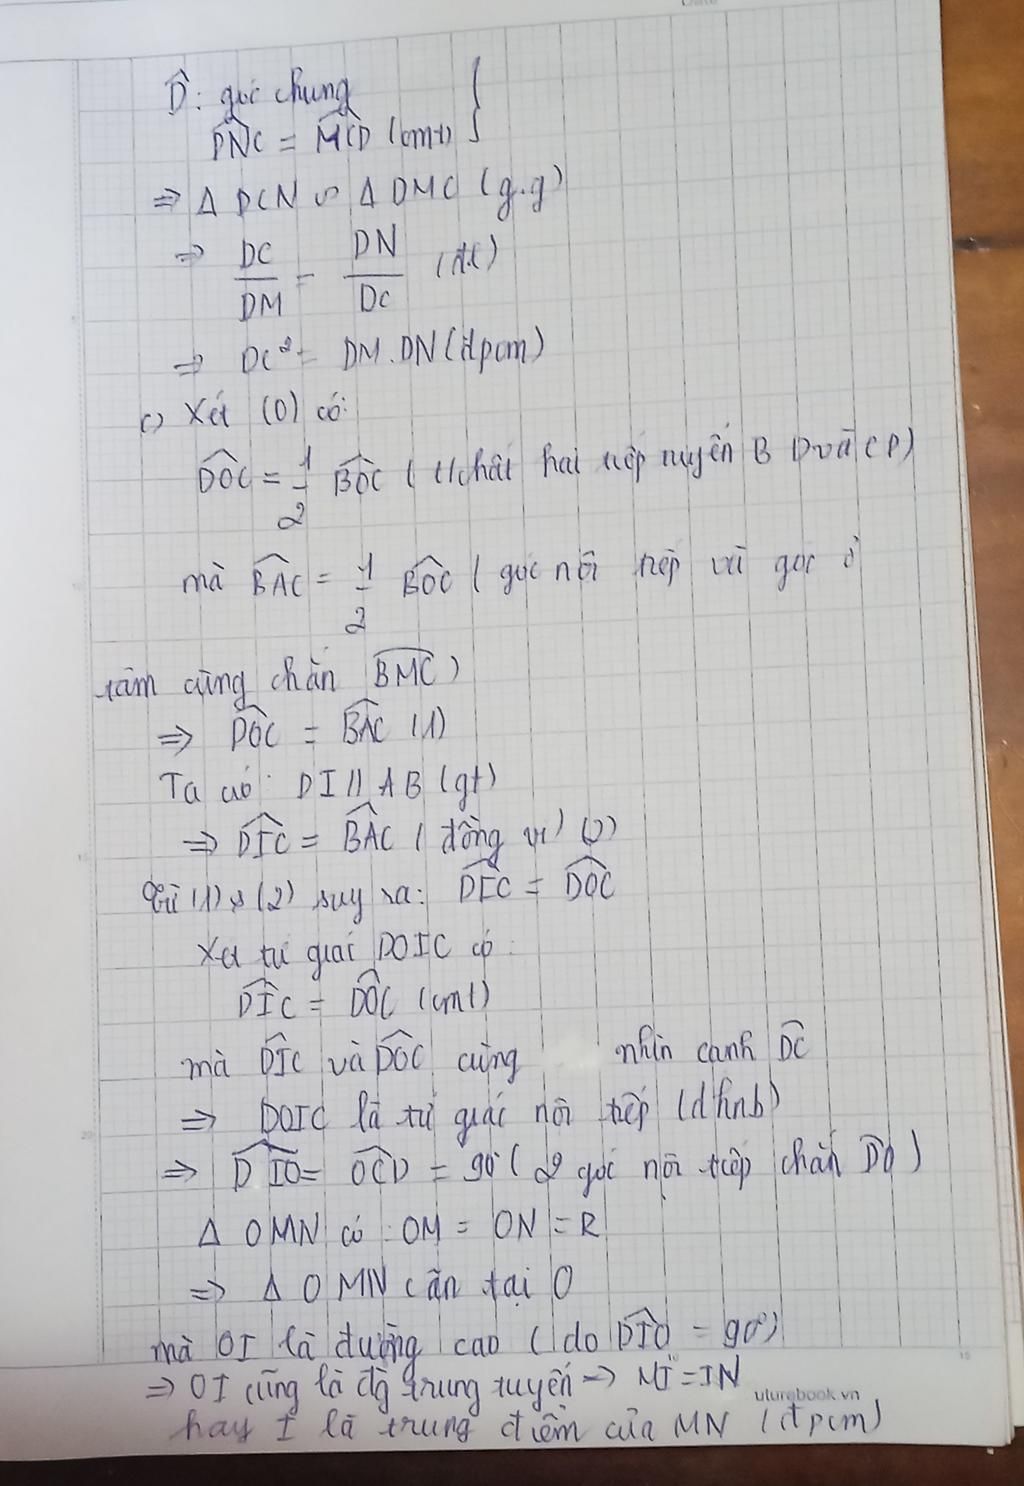 D̂: góc chung
DNC = MCD (cmt) }
⇒ Δ DCN ∽ Δ DMC (g.g)
⇒ DC/DM = DN/DC (tt)
⇒ DC² = DM.DN (đpcm)
c) Xét (O) có:
DOC = 1/2 BOC (t/chất hai tiếp tuyến BD và CD)
mà BAC = 1/2 BOC (góc nội tiếp và góc ở
tâm cùng chắn BMC)
⇒ DOC = BAC (1)
Ta có: DI // AB (gt)
⇒ DIC = BAC (đồng vị) (2)
Từ (1) & (2) suy ra: DIC = DOC
Xét tứ giác DOIC có:
DIC = DOC (cmt)
mà DIC và DOC cùng nhìn cạnh DC
⇒ DOIC là tứ giác nội tiếp (dhnb)
⇒ DIO = OCD = 90° (2 góc nội tiếp chắn DO)
Δ OMN có: OM = ON = R
⇒ Δ OMN cân tại O
mà OI là đường cao (do DIO = 90°)
⇒ OI cũng là đg trung tuyến ⇒ MI = IN
uturebook.vn
hay I là trung điểm của MN (đpcm)